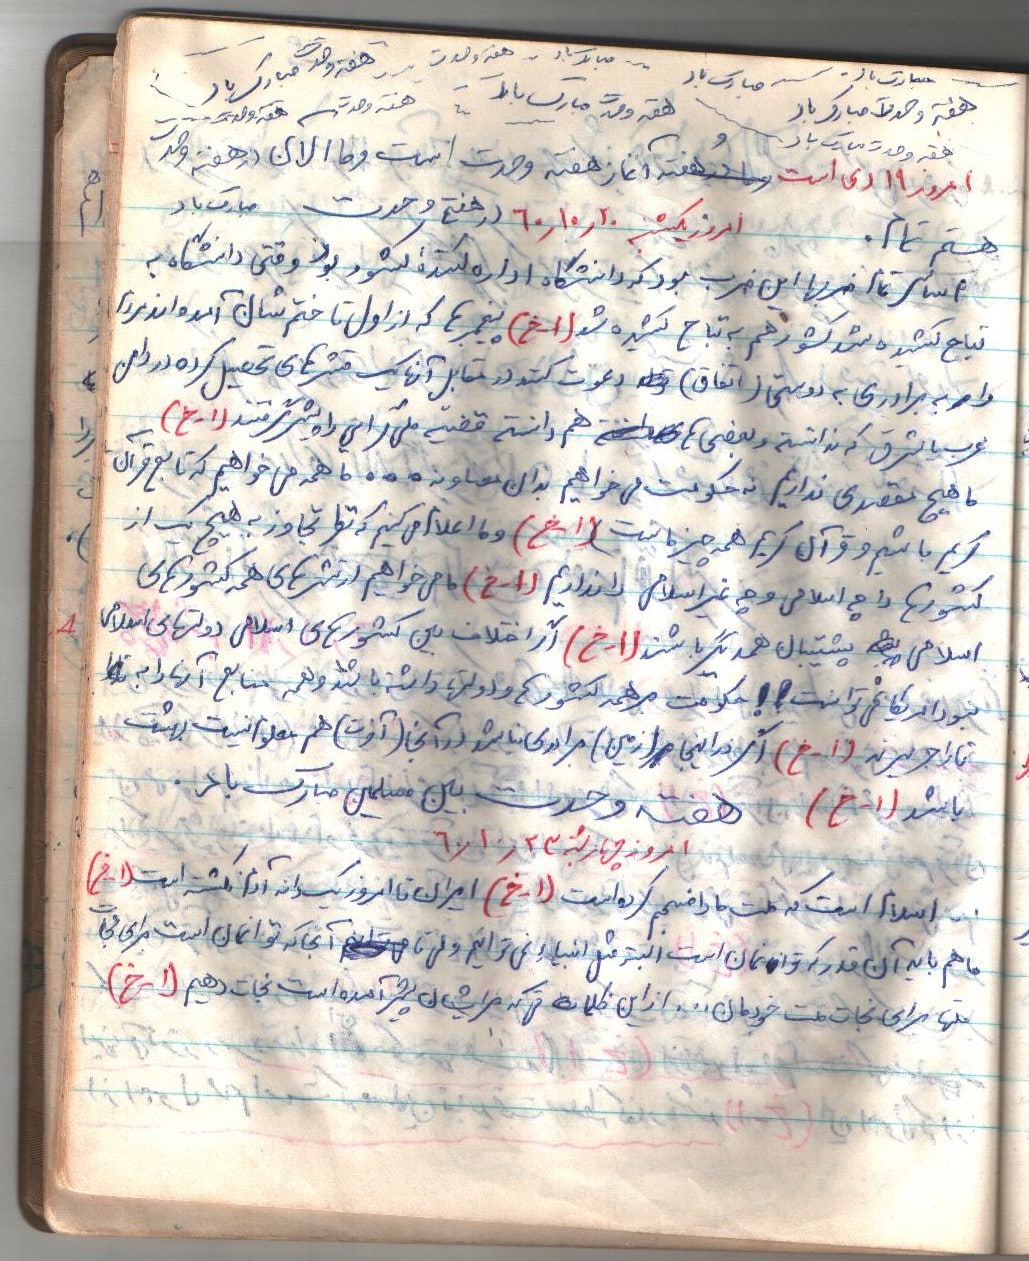 مبارک باد مبارک باد مبارک باد هفته وحدت هفته وحدت مبارک باد
هفته وحدت مبارک باد هفته وحدت مبارک باد هفته وحدت هفته وحدت
هفته وحدت مبارک باد
امروز ۱۹ دی است و هفته آغاز هفته وحدت است و ما الان در هفته وحدت
هستیم تمام. امروز یکشنبه ۲۰ر۱۰ر۶۰ در هفتۀ وحدت مبارک باد
تمام ضررها این ضرب بود که دانشگاه اداره کنندۀ کشور بود وقتی دانشگاه به
تباهی کشیده شد کشور هم به تباهی کشیده شد (ا-خ) پیغمبرها که از اول تا ختم شان آمده اند مردم
را به برادری به دوستی (اتفاق) دعوت کنند در مقابل آنها یک قشرهای تحصیل کرده در دامن
غرب یا شرق که ندانسته و بعضی ها هم دانسته قضیه ملی گرایی را پیش گرفتند (ا-خ)
ما هیچ مقصدی نداریم نه حکومت می خواهیم ... ما همه می خواهیم که تابع قرآن
کریم باشیم و قرآن کریم همه چیز ماست (ا-خ) و ما اعلام می کنیم که نظر تجاوز به هیچ یک از
کشورها چه اسلامی و چه غیر اسلامی را نداریم (ا-خ) ما می خواهیم ارتشهای همه کشورهای
اسلامی پشتیبان همدیگر باشند (ا-خ) اگر اختلاف بین کشورهای اسلامی دولتهای اسلامی
نبود امریکا نمی توانست!! حکومت بر همه کشورها و دولتها داشته باشد و همه منابع آنها را به
تاراج ببرند (ا-خ) اگر در اینجا (زمین) برادری نباشد در آنجا (آخرت) هم نمی توانیست بهشت
باشد (ا-خ) هفته وحدت بین مسلمین مبارک باد.
امروز چهارشنبه ۲۳ر۱۰ر۶۰
اسلام است که ملت ما را منسجم کرده است (ا-خ) ایران تا امروز یک دانه آدم نکشته است (ا-خ)
ما هم باید آن قدر که توانمان است البته مثل انبیا نمی توانیم ولی تا آنجا که توانمان است برای نجات
ملتها برای نجات ملت خودمان... از این ظلمات که برایشان پیش آمده است نجات دهیم (ا-خ)